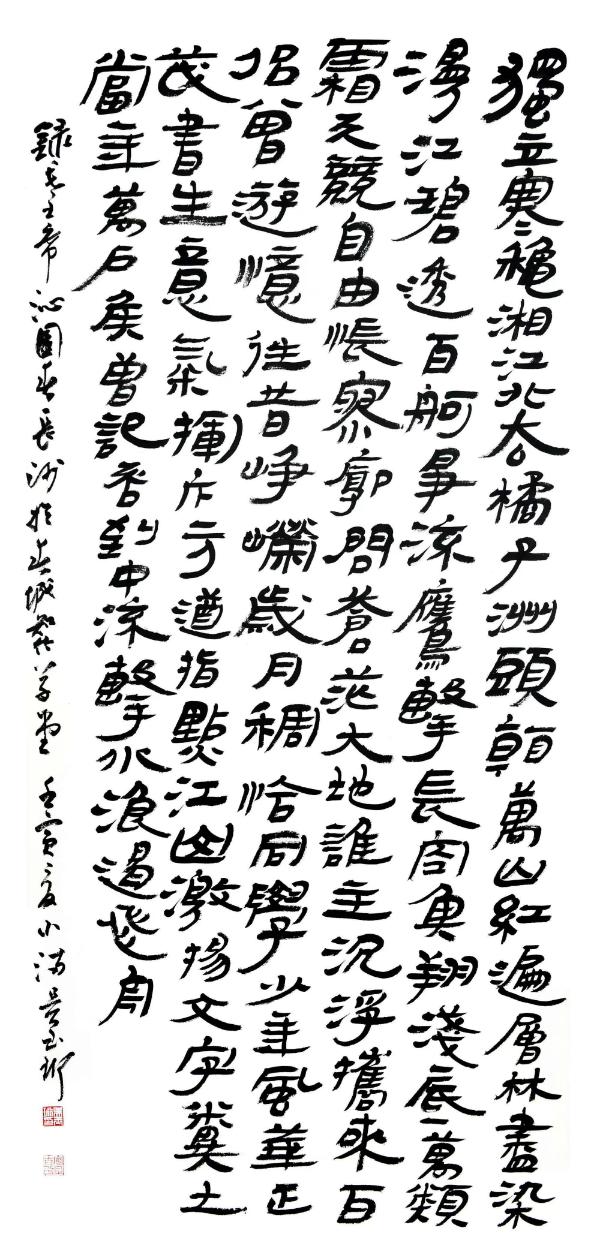 獨立寒秋湘江北去橘子洲頭看萬山紅遍層林盡染
漫江碧透百舸爭流鷹擊長空魚翔淺底萬類
霜天競自由悵寥廓問蒼茫大地誰主沉浮攜來百
侶曾遊憶往昔崢嶸歲月稠恰同學少年風華正
茂書生意氣揮斥方遒指點江山激揚文字糞土
當年萬戶侯曾記否到中流擊水浪遏飛舟
錄毛主席沁園春長沙於春城草堂壬寅之夏小滿吳玉